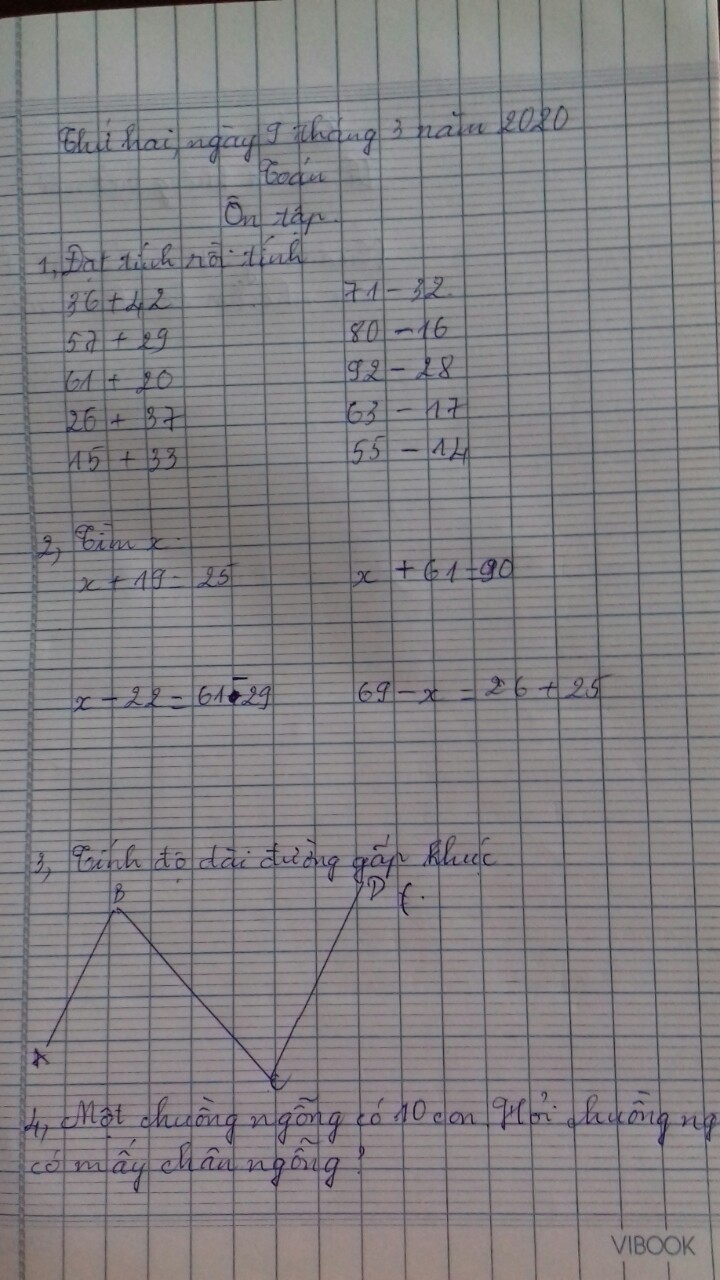 Thứ hai, ngày 9 tháng 3 năm 2020
Toán
Ôn tập.
1, Đặt tính rồi tính
36 + 42 71 - 32
57 + 29 80 - 16
61 + 20 92 - 28
26 + 37 63 - 17
15 + 33 55 - 14
2, Tìm x.
x + 19 = 25 x + 61 = 90
x - 22 = 61 - 29 69 - x = 26 + 25
3, Tính độ dài đường gấp khúc
B D (.
A
C
4, Một chuồng ngỗng có 10 con. Hỏi chuồng ng
có mấy chân ngỗng?
VIBOOK